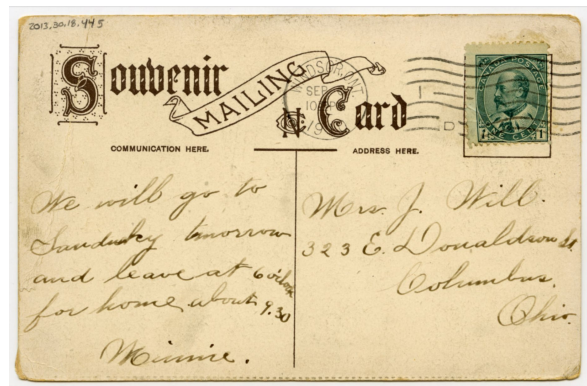 2013.30.18.445
Souvenir
MAILING
Card
COMMUNICATION HERE.
ADDRESS HERE.
WINDSOR, ONT
SEP
CANADA POSTAGE
1 1
D
We will go to
Sandusky tomorrow
and leave at 6 o'clock
for home about 9.30
Minnie.
Mrs. J. Will.
323 E. Donaldson St.
Columbus.
Ohio.